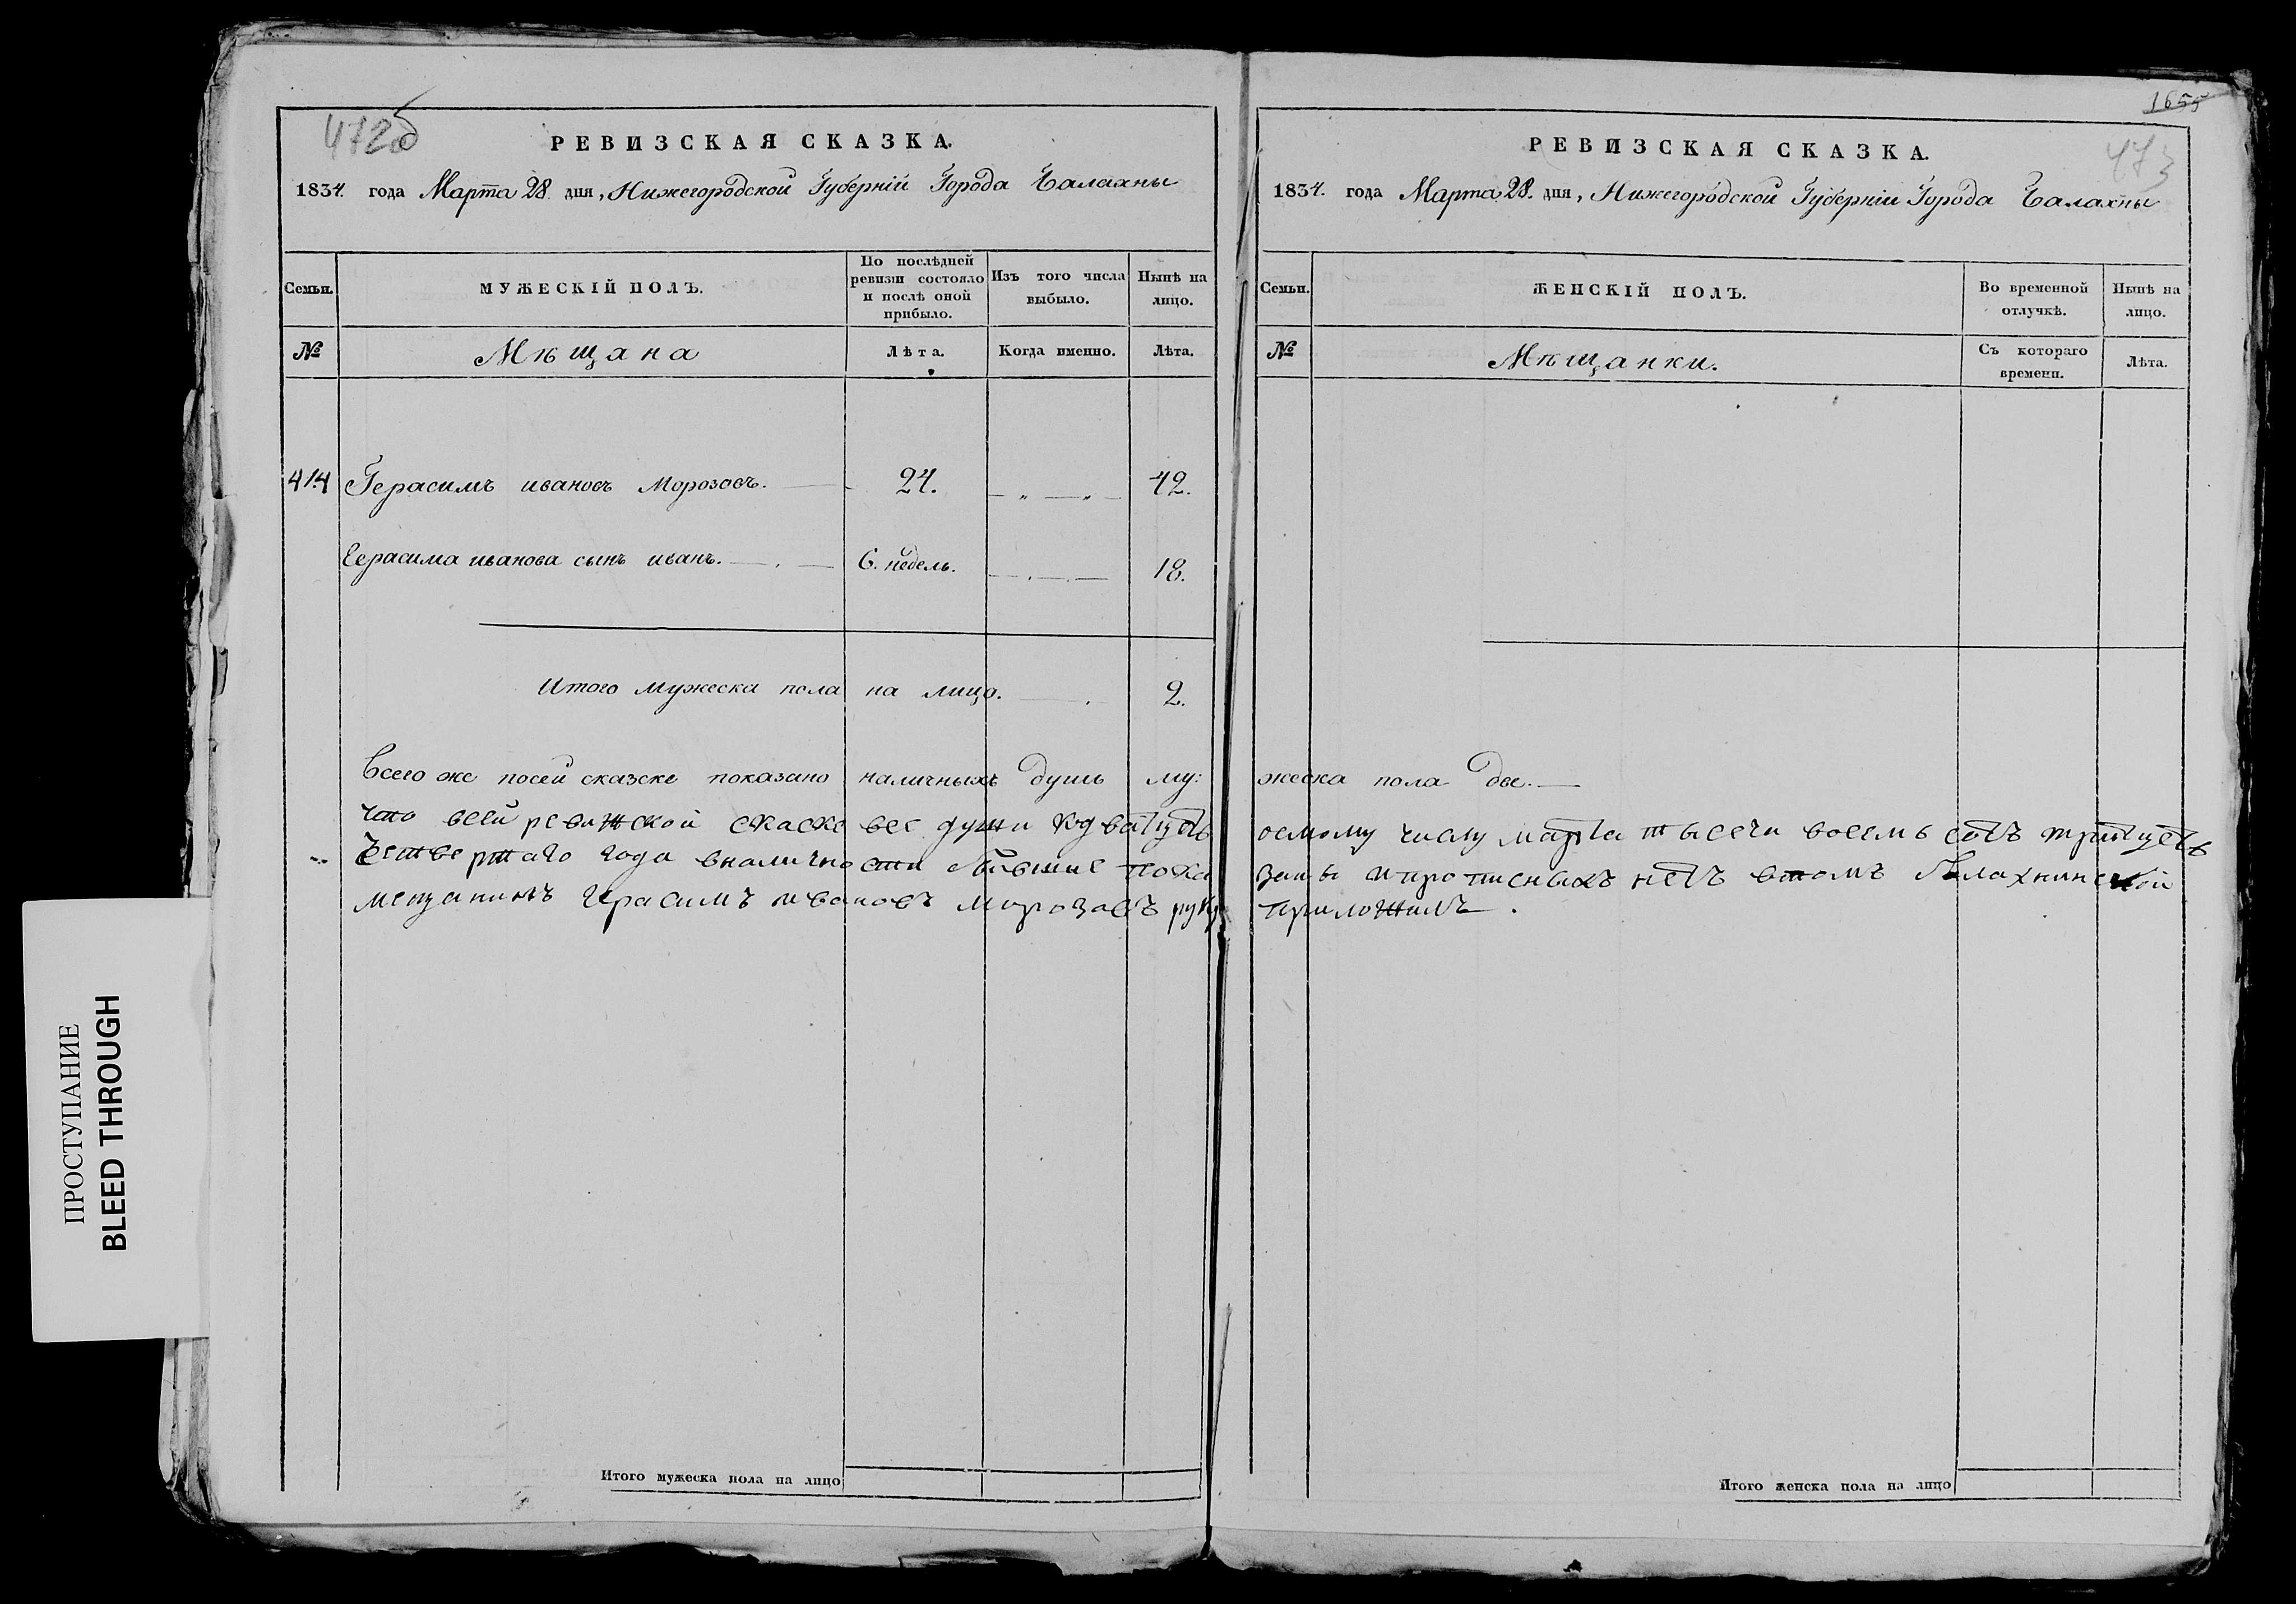 472об
РЕВИЗСКАЯ СКАЗКА.
1834. года Марта 28. дня, Нижегородской Губернiи Города Балахны
Семьи.
МУЖЕСКIЙ ПОЛЪ.
По послѣдней ревизiи состояло и послѣ оной прибыло.
Изъ того числа выбыло.
Нынѣ на лицо.
№
Мѣщана
Лѣта.
Когда именно.
Лѣта.
414 Герасимъ ивановъ Морозовъ. 24. — „ — „ — 42.
Герасима иванова сынъ иванъ. 6. недель. 18.
Итого мужеска пола на лицо. 2.
Всего же посей сказске показано наличныхъ душъ му:
что всей ревижской скаске все души кодватцеть
четвертаго года вналичности бывшие пока
мещанинъ Герасимъ ивановъ морозавъ руку
Итого мужеска пола на лицо
1655
473
РЕВИЗСКАЯ СКАЗКА.
1834. года Марта 28. дня, Нижегородской Губернiи Города Балахны
Семьи.
ЖЕНСКIЙ ПОЛЪ.
Во временной отлучкѣ.
Нынѣ на лицо.
№
Мѣщанки.
Съ котораго времени.
Лѣта.
жеска пола две.
осмому числу марта тысечи восемь сотъ тритцеть
заны ипрописныхъ нетъ втомъ балахнинской
приложилъ.
Итого женска пола на лицо
ПРОСТУПАНИЕ
BLEED THROUGH